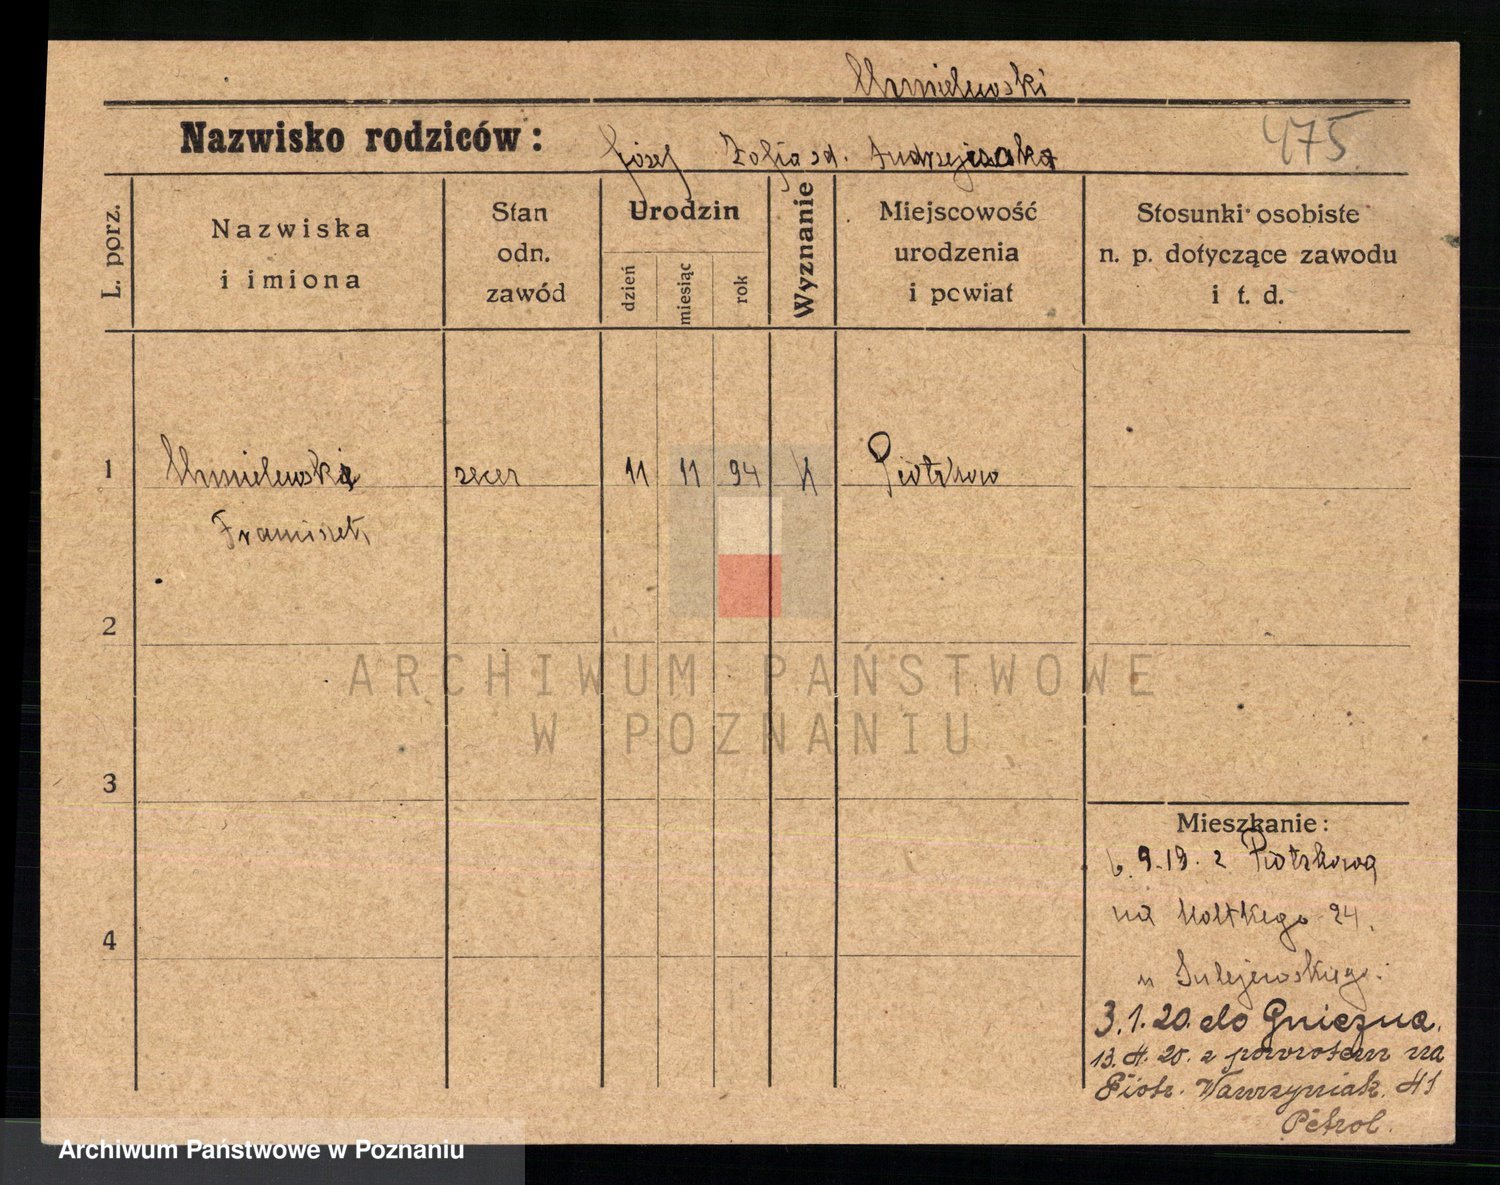 Chmielewski
Nazwisko rodziców: Józef Zofia zd. Andrzejczaka
475
L. porz.
Nazwiska
i imiona
Stan
odn.
zawód
Urodzin
dzień
miesiąc
rok
Wyznanie
Miejscowość
urodzenia
i powiat
Stosunki osobiste
n. p. dotyczące zawodu
i t. d.
1 Chmielewski zecer 11 11 94 K Piotrkow
Franciszek
2
3
4
Mieszkanie:
6.9.19. z Piotrkowa
na Moltkego 24.
u Sulejewskiego.
3.1.20. do Gniezna.
13.4.20. z powrotem na
Piotr. Wawrzyniak. 41
Petrol.
ARCHIWUM PAŃSTWOWE
W POZNANIU
Archiwum Państwowe w Poznaniu